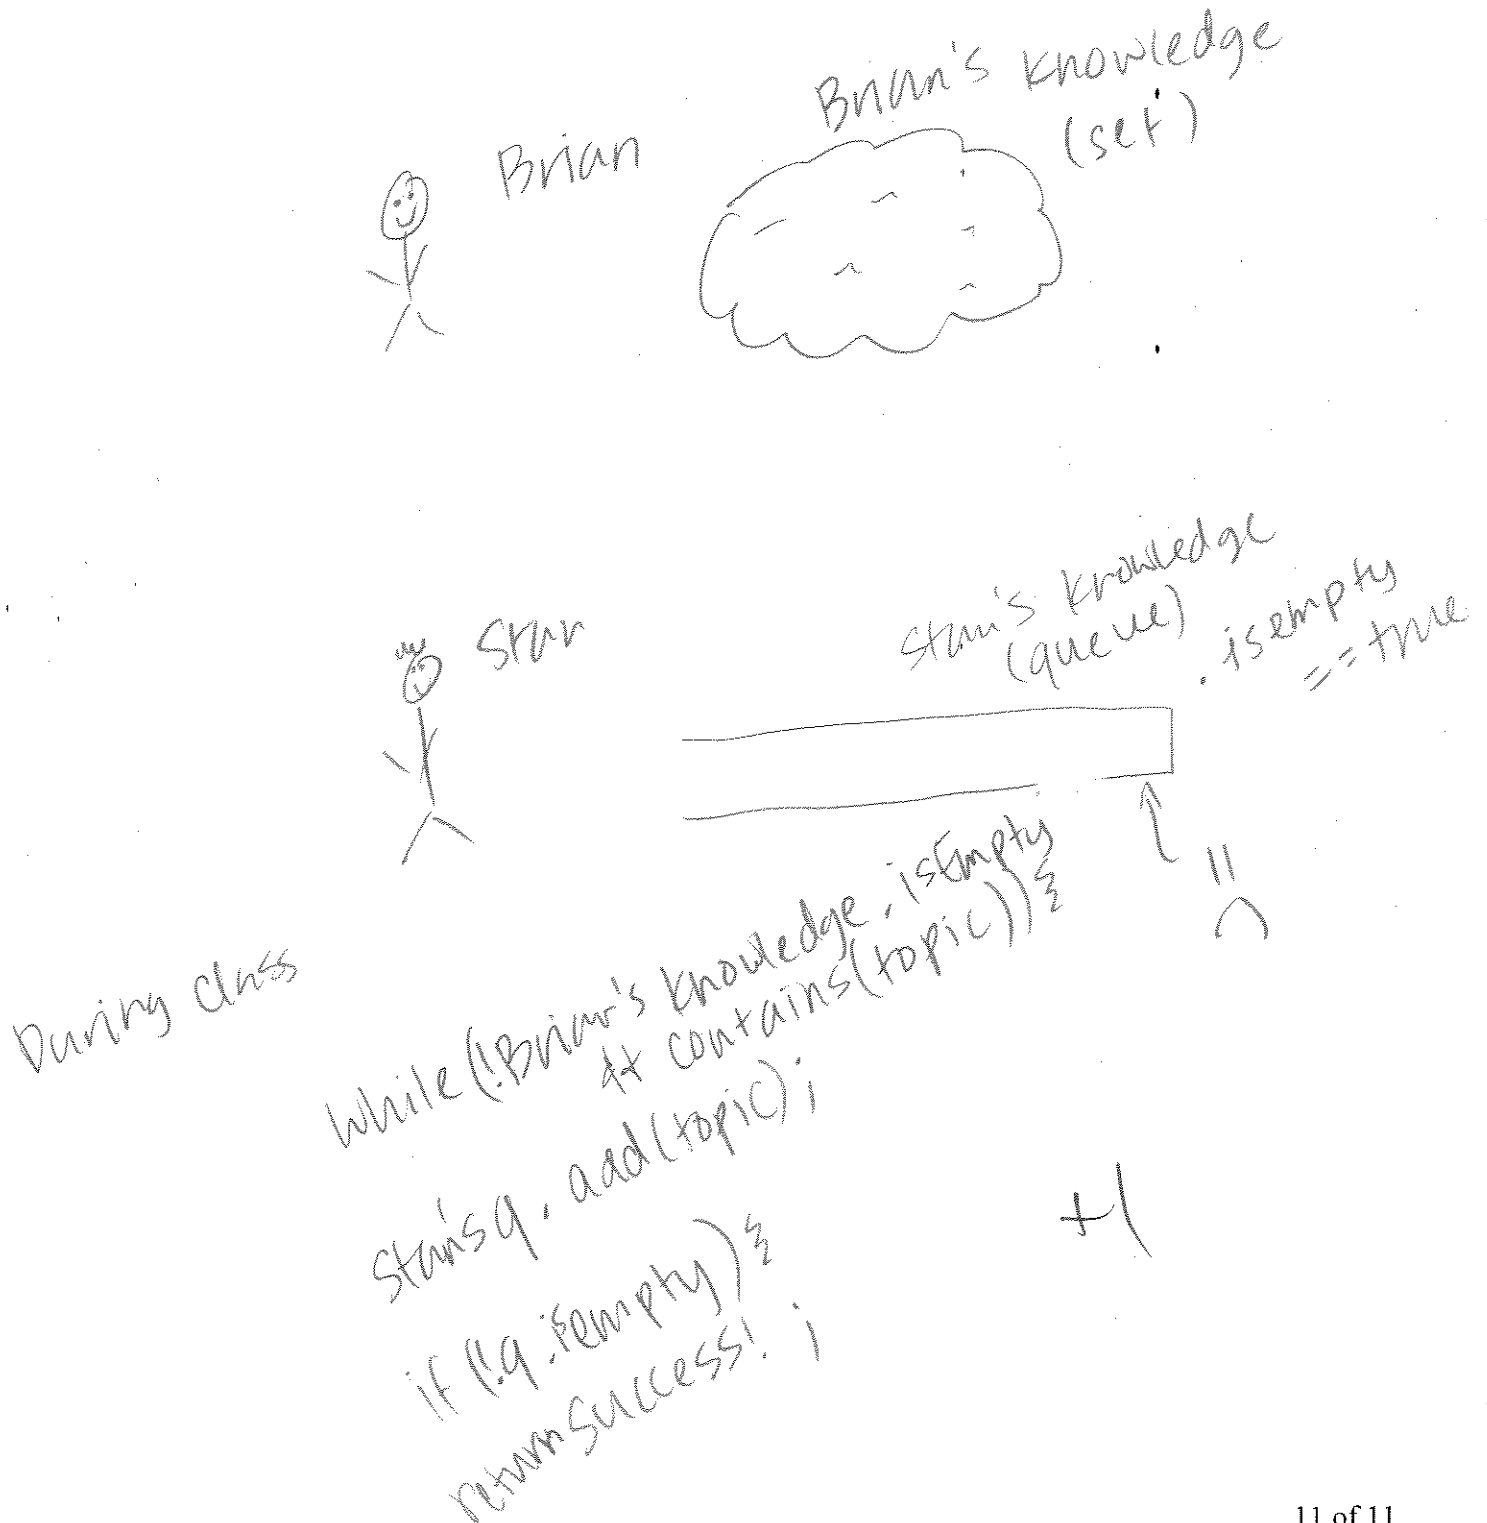 Brian's knowledge
(set)
Brian
Stan's knowledge
(queue)
.isempty
==true
Stan
During class
While(!Brian's knowledge.isEmpty
&& contains(topic)){
Stan's q.add(topic);
if (!q.isempty){
return success! ;
+1
11 of 11